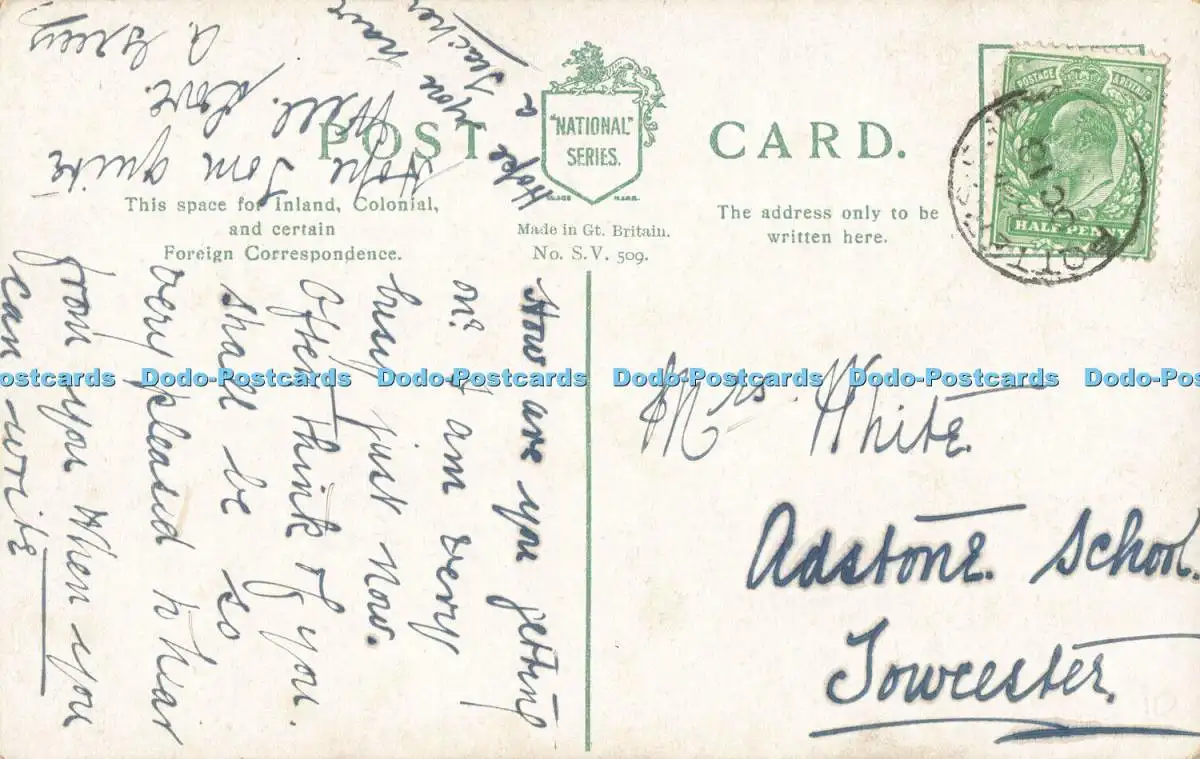 POST CARD.
"NATIONAL"
SERIES.
This space for Inland, Colonial,
and certain
Foreign Correspondence.
Made in Gt. Britain.
No. S.V. 509.
The address only to be
written here.
POSTAGE
HALF PENNY
How are you getting
on? I am very
busy just now.
Often think of you.
Shall be so
very pleased to hear
from you When you
can write
Hope you have
a Teacher
Hope Tom quite
Well. Love.
A.
Mrs White
Adstone School.
Towcester.
Dodo-Postcards Dodo-Postcards Dodo-Postcards Dodo-Postcards Dodo-Postcards